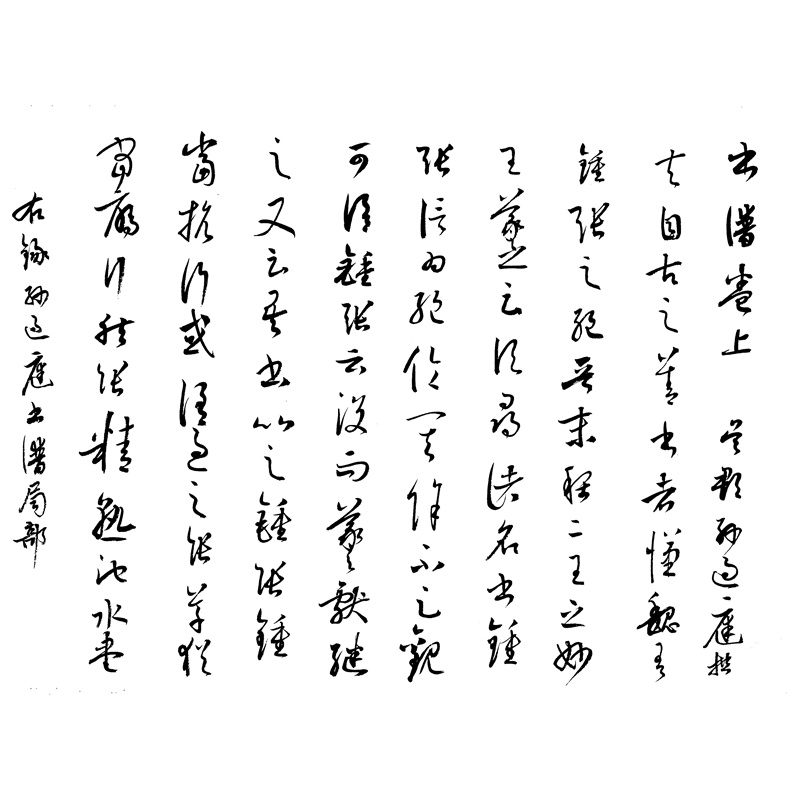 書譜卷上 吳郡孫過庭撰
夫自古之善書者漢魏有
鍾張之絕晉末稱二王之妙
王羲之云頃尋諸名書鍾
張信為絕倫其餘不足觀
可謂鍾張云沒而羲獻繼
之又云吾書比之鍾張鍾
當抗行或謂過之張草猶
當雁行然張精熟池水盡
右錄孫過庭書譜局部